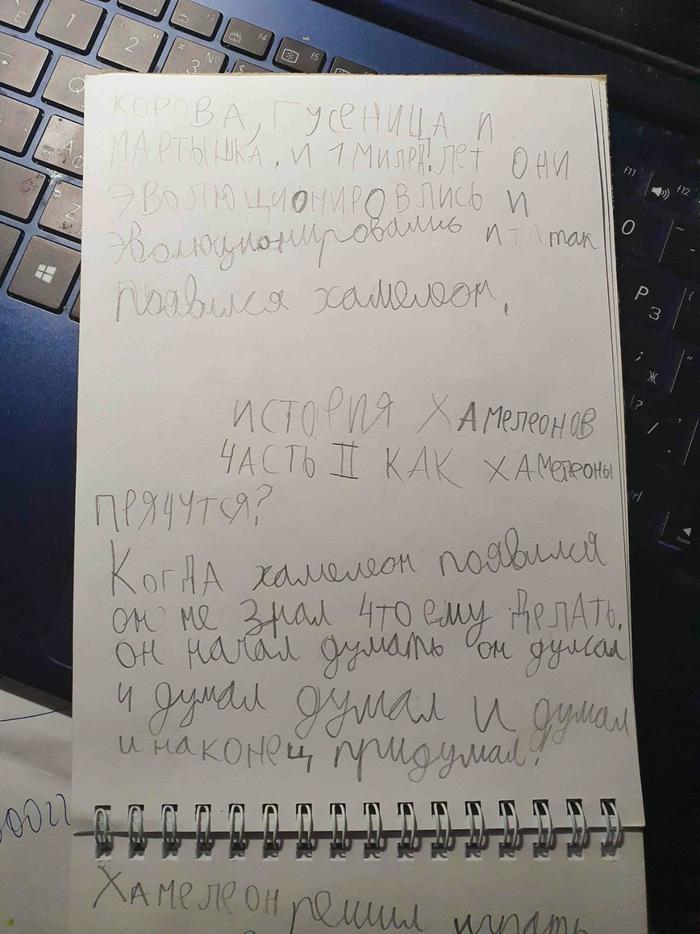 КОРОВА, ГУСЕНИЦА И
МАРТЫШКА, И 1 МИЛРД. ЛЕТ ОНИ
ЭВОЛЮЦИОНИРОВЛИСЬ И
эволюционировались и так
появился хамелеон.
ИСТОРИЯ ХАМЕЛЕОНОВ
ЧАСТЬ II КАК ХАМЕЛЕОНЫ
ПРЯЧУТСЯ?
КОГДА хамелеон появился
он не знал что ему делать.
он начал думать он думал
и думал думал и думал
и наконец придумал!
Хамелеон решил играть